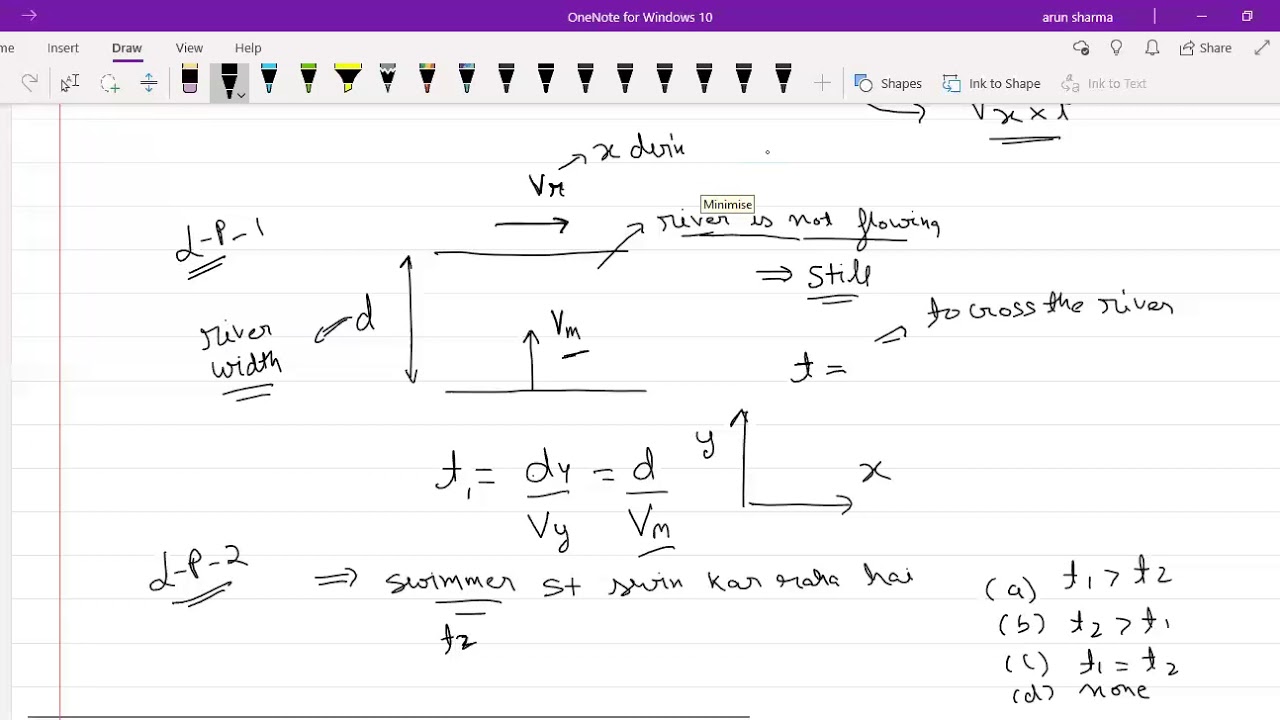 OneNote for Windows 10
arun sharma
me Insert Draw View Help
Share
Shapes
Ink to Shape
Ink to Text
Vx × t
x dirn
Vr
Minimise
river is not flowing
L-P-1
⇒ Still
to cross the river
river width
d
Vm
t =
y
x
t1 = dy/Vy = d/Vm
L-P-2 ⇒ swimmer st swim kar raha hai
t2
(a) t1 > t2
(b) t2 > t1
(c) t1 = t2
(d) none